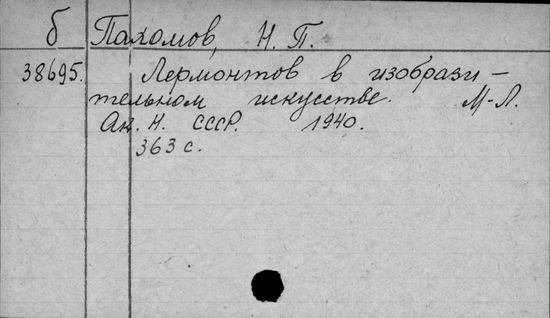 б Пахомов, Н. П.
38695. Лермонтов в изобрази-
тельном искусстве. М-Л.
Ак. Н. СССР. 1940.
363 с.